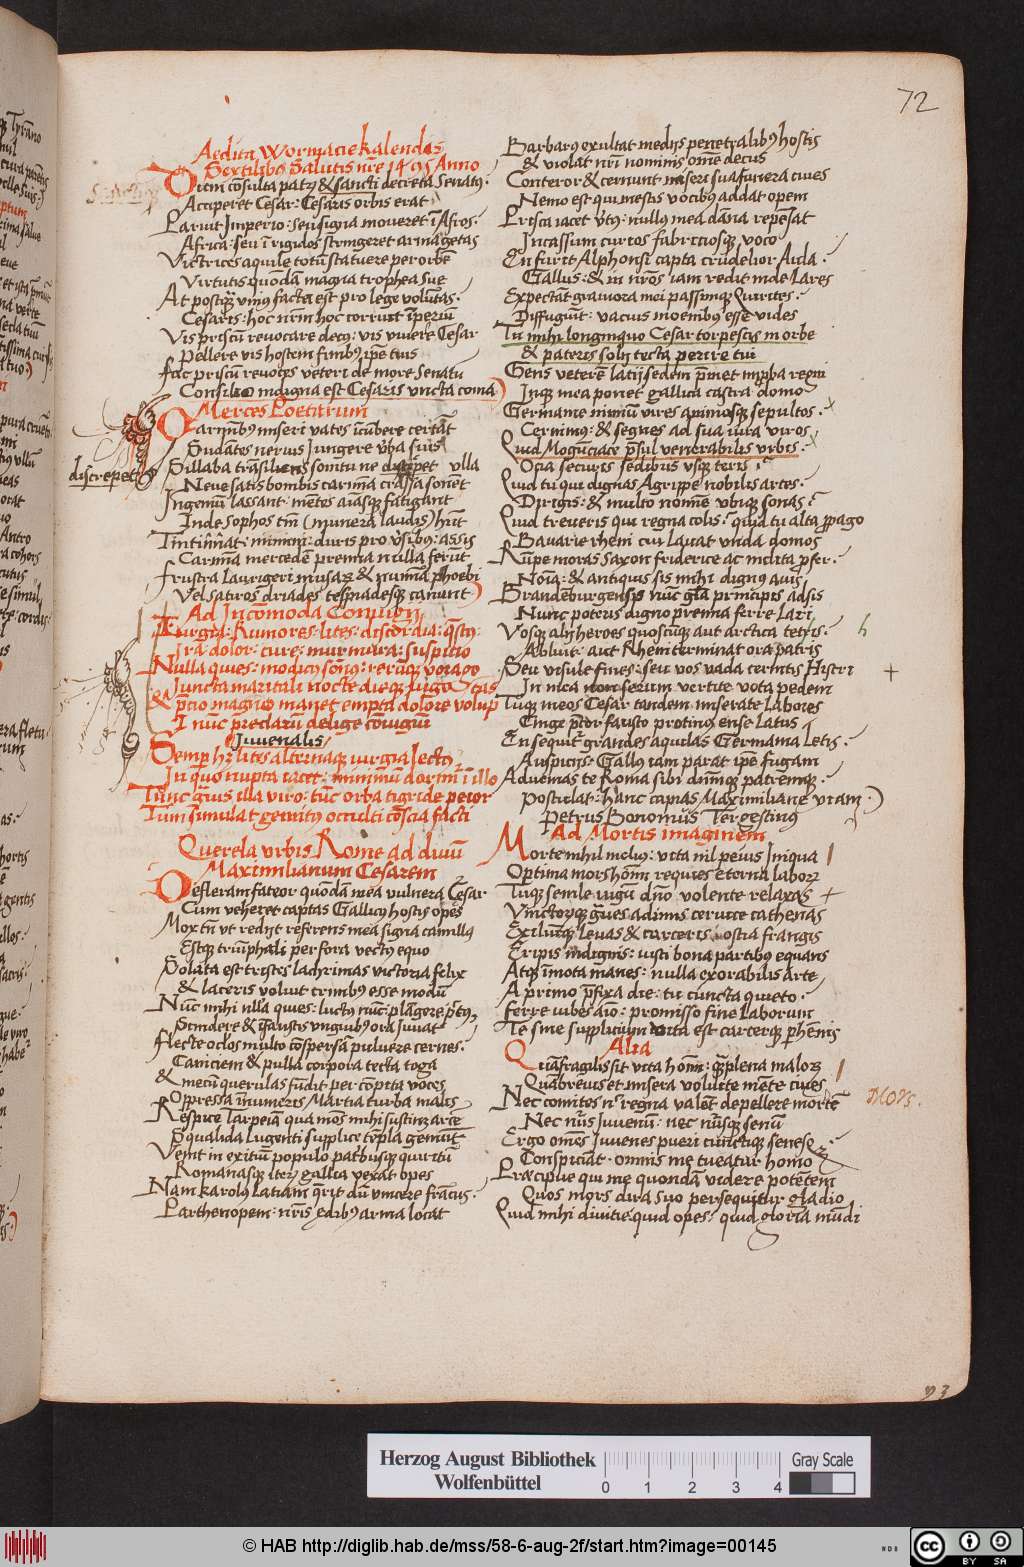 72
Aedita Wormacie kalendas
Sextilibus Salutis nr̄e 1495 Anno
Dum cōsulta patrū & sancti decreta Senatus.
Acciperet Cesar: Cesaris orbis erat
Paruit Imperio: seu signa moueret ī Afros.
Africa: seu ī rigidos stringeret arma getas
Victrices aquile totū statuere per orbē
Virtutis quōdā magna trophea sue
At postq̄ vnius facta est pro lege volūtas.
Cesaris: hoc nr̄m hoc corruit īperiū
Vis priscū reuocare decus: vis viuere Cesar
Pellere vis hostem finibus ip̄e tuis
fac priscū reuoces veteri de more Senatū
Consilio indigna est Cesaris vncta coma
Merces Poetarum
Carminibus miseri vates īcūbere certāt
Sudātes neruis Jungere v̄ba suis
Sillaba trāsiliens sonitu ne discrepet vlla
discrepet
Neue satis bombis carmīa crassa sonēt
Ingeniū lassant: mētes aīasque fatigant
Inde sophos tm̄ (munera laudis) hn̄t
Tintīnāt: nimirū: duris pro v̄sibus: assis
Carmīa mercedē premia nulla ferūt
frustra Laurigeri musas & numīa Phoebi
Vel satiros driades tespiadesque canunt
Ad Incōmoda Coniugii
Iurgia: Rumores: lites: discordia: q̄stus:
Ira: dolor: cure: murmura: suspicio
Nulla quies: modicus sōnus: rerūque vorago
Juncta maritali nocte dieque iugo
& p̄cio magno manet empta dolore voluptas
I nūc preclarū delige cōiugiū
Juuenalis
Semper hz̄ lites alternaque iurgia Lectus
In quo nupta iacet: minimū dormīt ī illo
Tunc grauis illa viro: tūc orba tigride peior
Tum simulat gemitus occulti cōscia facti
Querela vrbis Rome ad diuū
Maximilianum Cesarem
Defleram fateor quōdā mea vulnera Cesar
Cum veheret captas Gallicus hostis opes
Mox tn̄ vt redijt referens mea signa camillus
Estque triūphali per fora vectus equo
Solata est tristes lachrimas victoria felix
& laceris voluit crinibus esse modū
Nūc mihi nulla quies: luctus nūc: plāgore
Scindere & īfaustis vnguibus ora iuuat
flecte oclos multo cōspersā puluere cernes.
Caniciem & pulla corpora tecta toga
& mecū querulas fūdit per cōpita voces
Oppressa īnumeris Martia turba malis
Respice Tarpeiā qua mōs mihi sustinz arcē
Squalida Lugenti supplice tēpla gemūt
Venit in exitiū populo patribusque quiritū
Romanasque iterū gallia vexat opes
Nam karolus Latiam q̄rit dū vincere frācus.
Parthenopem: nr̄is edibus arma locat
Barbarus exultat medijs penetralibus hostis
& violat nr̄i nominis om̄e decus
Conteror & cernunt miseri sua funera ciues
Nemo est qui mestis vocibus addat opem
Prisca iacet v̄tus: nullus mea dāna repēsat
Incassum curios fabriciosque voco
En furit Alphonsi capta crudelior Aula.
Gallus: & in nr̄os iam redit inde Lares
Expectāt grauiora mei passimque Quirites.
Diffugiūt: vacuis moenibus esse vides
Tu mihi longinquo Cesar torpescis in orbe
& pateris solij tecta perire tui
Gens veterē latij sedem p̄met improba regni
Inque mea ponet gallica castra domo
Germanie nimiū vires animosque sepultos.
Cernimus: & segnes ad sua iura viros
Quid Moguntiace p̄sul venerabilis vrbis.
Ocia securis sedibus vsque teris?
Quid tu qui dignas Agrippe nobilis artes.
Dirigis: & multo nomīe vbique sonas?
Quid treueris qui regna colis? quid tu alta propago
Bauarie rheni cui lauat vnda domos
Rūpe moras saxon friderice ac inclita p̄fer.
Noīa: & antiquis sis mihi dignus auis
Brandenburgensis nūc glīa principis adsis
Nunc poteris digno premia ferre Lari
Vosque alij heroes quoscūque aut arctica tetis.
Abluit: aut Rheni terminat ora patris
Seu visule fines: seu vos vada cernitis Histri
In mea non serum vertite vota pedem
Tuque meos Cesar tandem miserate Labores
Cinge p̄cor fausto protinus ense latus
En sequit̄ grandes aquilas Germania Letis.
Auspicijs: Gallus iam parat ip̄e fugam
Aduenias te Roma sibi dnm̄que patremque.
Postulat: hanc capias Maximiliane viam.
Petrus Bonomus Tergestinus
Ad Mortis imaginem
Morte nihil melius: vita nil peius Iniqua
Optima mors hoīm requies eterna laborum
Tuque senile iugū dn̄o volente relaxas
Vinctorumque graues adimis ceruice cathenas
Exiliūque Leuas & carceris ostia frangis
Eripis indignis: iusti bona partibus equans
Atque īmota manes: nulla exorabilis arte
A primo p̄fixa die: tu cuncta quieto.
ferre iubes aīo: promisso fine laborum
Te sine supplicium vita est carcerque perhennis
Alia
Quā fragilis sit vita hom̄: q̄ plena malorum
Quā breuis et misera voluite mēte ciues
Nec comites nec regna valēt depellere mortē
Mors.
Nec nr̄us iuuenū: nec nr̄usque senū
Ergo om̄es Juuenes pueri cunctique senesque.
Conspiciāt. omnis me tueatur homo
Praecipue qui me quondā videre potētem
Quos mors dira suo persequitur gladio
Quid mihi diuitie quid opes? quid gloria mūdi
93
Herzog August Bibliothek
Wolfenbüttel
0 1 2 3 4
Gray Scale
© HAB http://diglib.hab.de/mss/58-6-aug-2f/start.htm?image=00145
WDB
cc BY SA